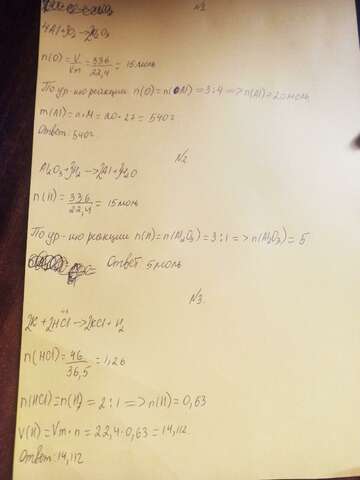 N1
4Al+3O₂→2Al₂O₃
n(O)=V/Vm=336/22,4=15моль
По ур-ию реакции n(O)=n(Al)=3:4=>n(Al)=20моль
m(Al)=n·M=20·27=540г
Ответ: 540г
N2
Al₂O₃+3H₂→2Al+3H₂O
n(H)=336/22,4=15моль
По ур-ию реакции n(H)=n(Al₂O₃)=3:1=>n(Al₂O₃)=5
Ответ: 5моль
N3.
2K+2HCl→2KCl+H₂
n(HCl)=46/36,5=1,26
n(HCl)=n(H)=2:1=>n(H)=0,63
V(H)=Vm·n=22,4·0,63=14,112
Ответ: 14,112